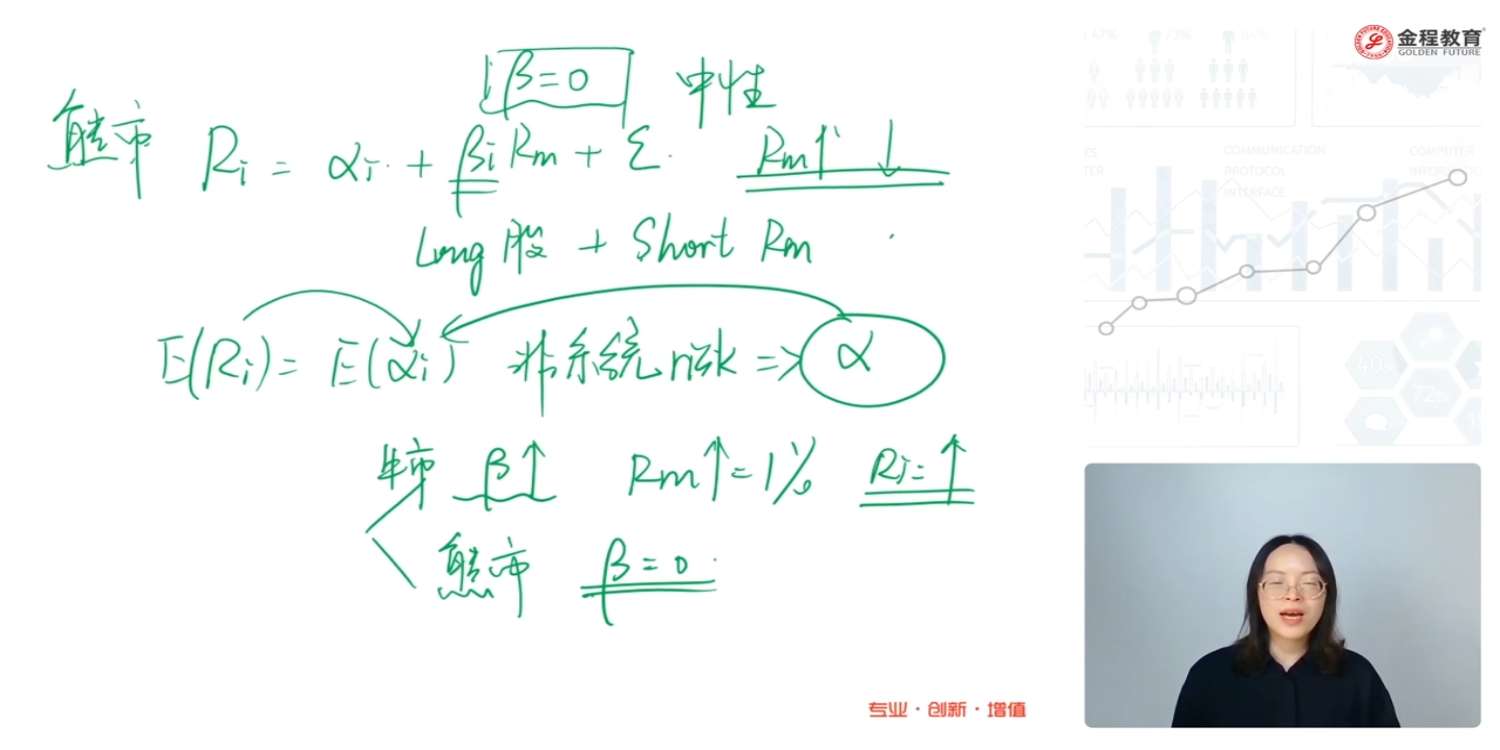 β=0 中性
熊市 Ri = αi + βi Rm + ε Rm↑↓
Long 股 + Short Rm
E(Ri) = E(αi) 非系统risk => α
牛市 β↑ Rm↑=1% Ri=↑
熊市 β=0
专业·创新·增值
金程教育
GOLDEN FUTURE
COMMUNICATION
PROTOCOL
INTERFACE
COMPUTER
40%
72%